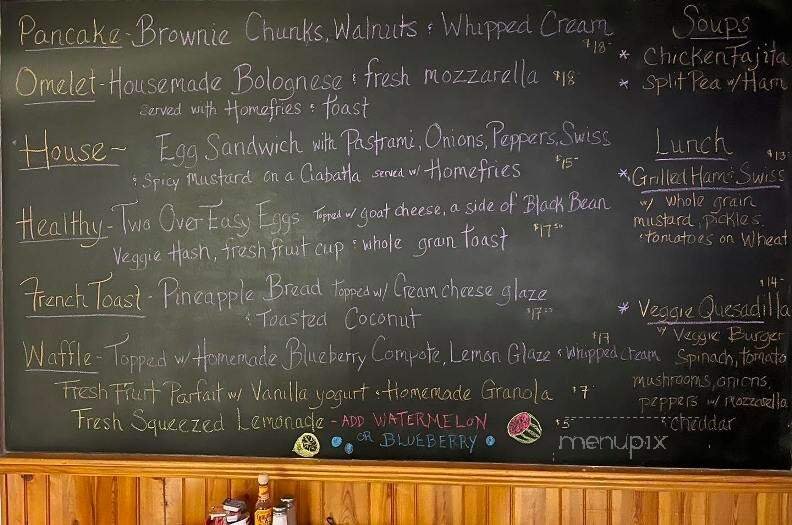 Pancake - Brownie Chunks, Walnuts & Whipped Cream
$18-
Omelet - Housemade Bolognese & fresh mozzarella $18
served with Homefries & toast
House ~ Egg Sandwich with Pastrami, Onions, Peppers, Swiss
& Spicy Mustard on a Ciabatta served w/ Homefries $15-
Healthy - Two Over Easy Eggs Topped w/ goat cheese, a side of Black Bean
Veggie Hash, fresh fruit cup & whole grain toast $17.50
French Toast - Pineapple Bread Topped w/ Cream cheese glaze
& Toasted Coconut $17.50
$17
Waffle - Topped w/ Homemade Blueberry Compote, Lemon Glaze & whipped cream
Fresh Fruit Parfait w/ Vanilla yogurt & Homemade Granola $7-
Fresh Squeezed Lemonade - ADD WATERMELON
OR BLUEBERRY $5
Soups
* Chicken Fajita
* Split Pea w/ Ham
Lunch
$13-
* Grilled Ham & Swiss
w/ whole grain
mustard, pickles
& tomatoes on Wheat
$14-
* Veggie Quesadilla
w/ Veggie Burger
Spinach, tomato
mushrooms, onions,
peppers w/ mozzarella
& cheddar
menupix